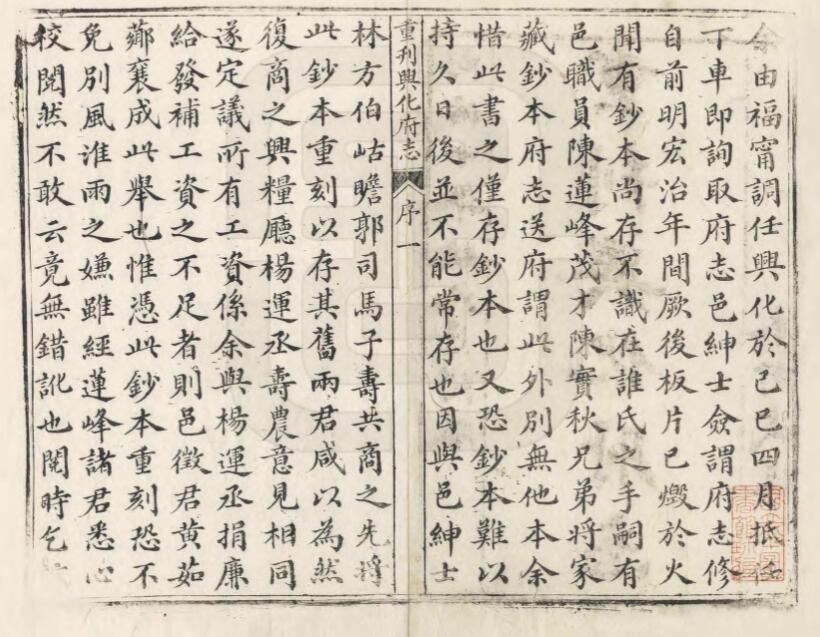 余由福甯調任興化於己巳四月抵任
丁車即詢取府志邑紳士僉謂府志修
自前明宏治年間厥後板片已燬於火
聞有鈔本尚存不識在誰氏之手嗣有
邑職員陳蓮峰茂才陳實秋兄弟將家
藏鈔本府志送府謂此外別無他本余
惜此書之僅存鈔本也又恐鈔本難以
持久日後並不能常存也因與邑紳士
重刊興化府志
序
一
林方伯岵瞻郭司馬子壽共商之先將
此鈔本重刻以存其舊兩君咸以為然
復商之興糧廳楊運丞壽農意見相同
遂定議所有工資係余與楊運丞捐廉
給發補工資之不足者則邑徵君黄茹
薌襄成此舉也惟憑此鈔本重刻恐不
免別風淮雨之嫌雖經蓮峰諸君悉心
校閱然不敢云竟無錯訛也閱時乞